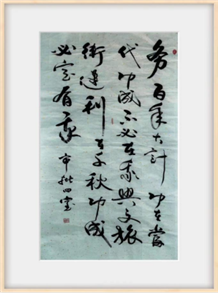 务百年大计功在当
代功成不必在我兴文旅
街道利在千秋功成
必定有我